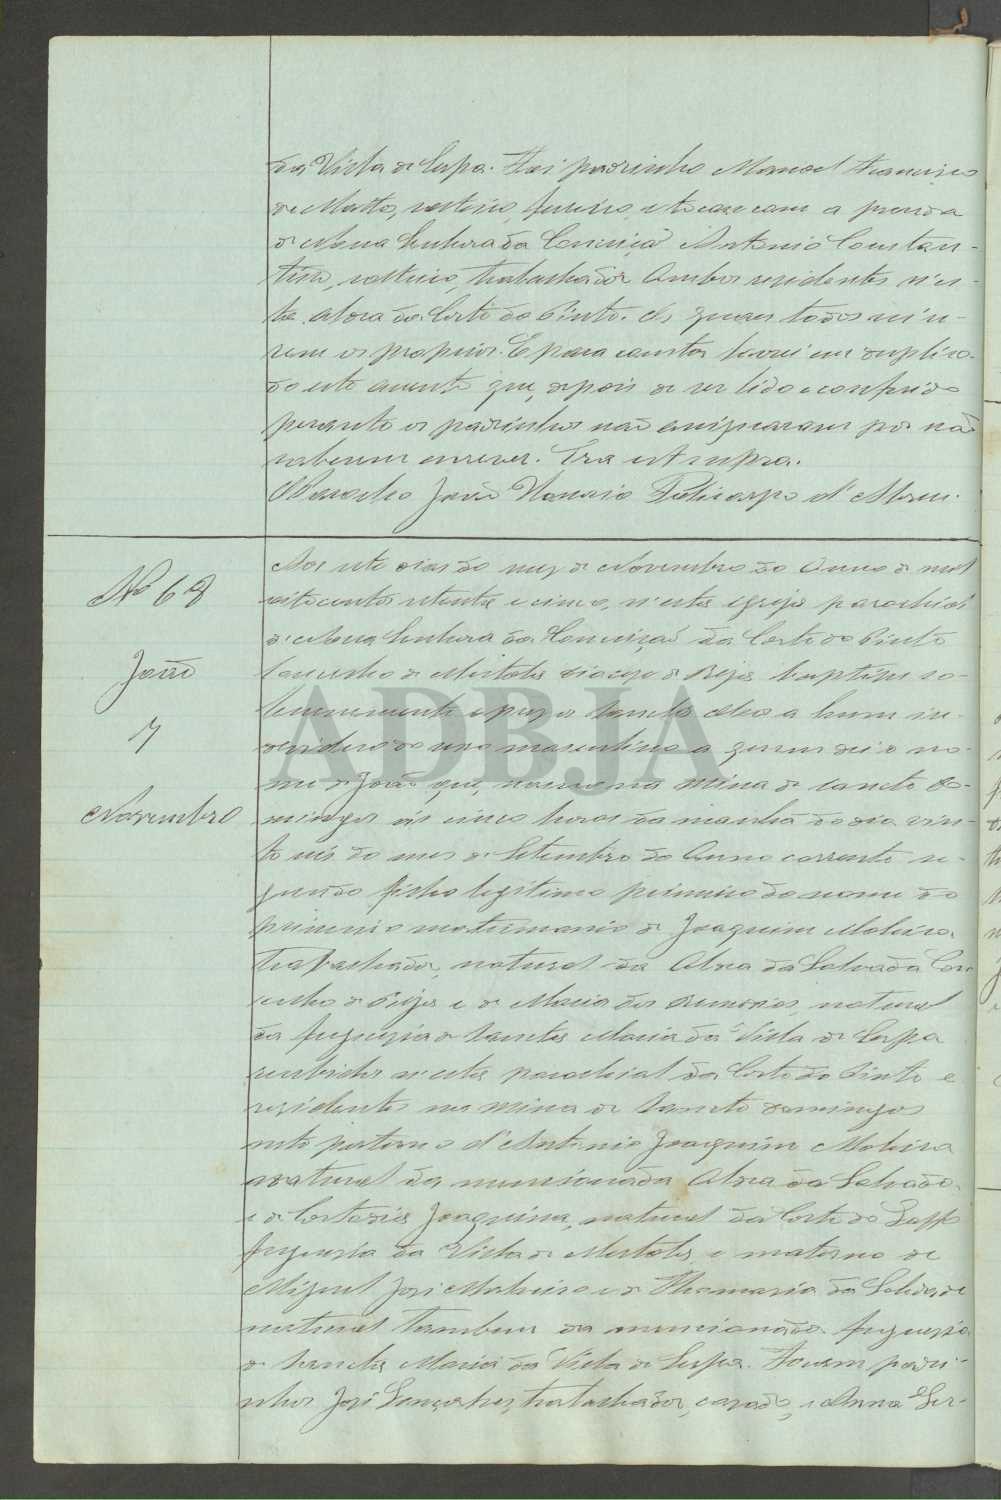 da Villa de Serpa. Foi padrinho Manoel Francisco
de Mattos, solteiro, ferreiro, e tocou com a prenda
de Nossa Senhora da Conceição Antonio Constan-
tino, solteiro, trabalhador Ambos residentes n'es-
ta Aldea da Corte do Pinto. Os quaes todos
serem os proprios. E para constar lavrei em duplica-
do este assento que, depois de ser lido e conferido
perante os padrinhos não assignaram por não
saberem escrever. Era ut supra.
O Parocho João Policarpo d'Abreu.
Nº 68
João
7
Novembro
Aos sete dias do mez de Novembro do Anno de mil
oito centos setenta e cinco, n'esta egreja parochial
de Nossa Senhora da Conceição da Corte do Pinto
Concelho de Mertola diocese de Beja baptisei so-
lemnemente e puz os Sanctos Oleos a hum in-
dividuo do sexo masculino a quem dei o no-
me de João que, nasceu na Mina de Sancto Do-
mingos ás cinco horas da manhã do dia vin-
te seis do mes de Setembro do Anno corrente se-
gundo filho legitimo primeiro do nome do
primeiro matrimonio de Joaquim Moleiro
trabalhador, natural da Aldea da Salvada Con
celho de Beja e de Maria das natural
da freguesia de Sancta Maria da Villa de Serpa
recebidos n'esta parochial da Corte do Pinto e
residentes na Mina de Sancto Domingos
neto paterno d'Antonio Joaquim Moleiro
natural da mencionada Aldea da Salvada
e de Joaquina, natural da Corte do
freguesia da Villa de Mertola e materno de
Miguel José e de Thomasia da
natural tambem da mencionada freguesia
de Sancta Maria da Villa de Serpa. Foram padri-
nhos José Gonçalves, trabalhador, casado, e Anna Ger-
ADBJA